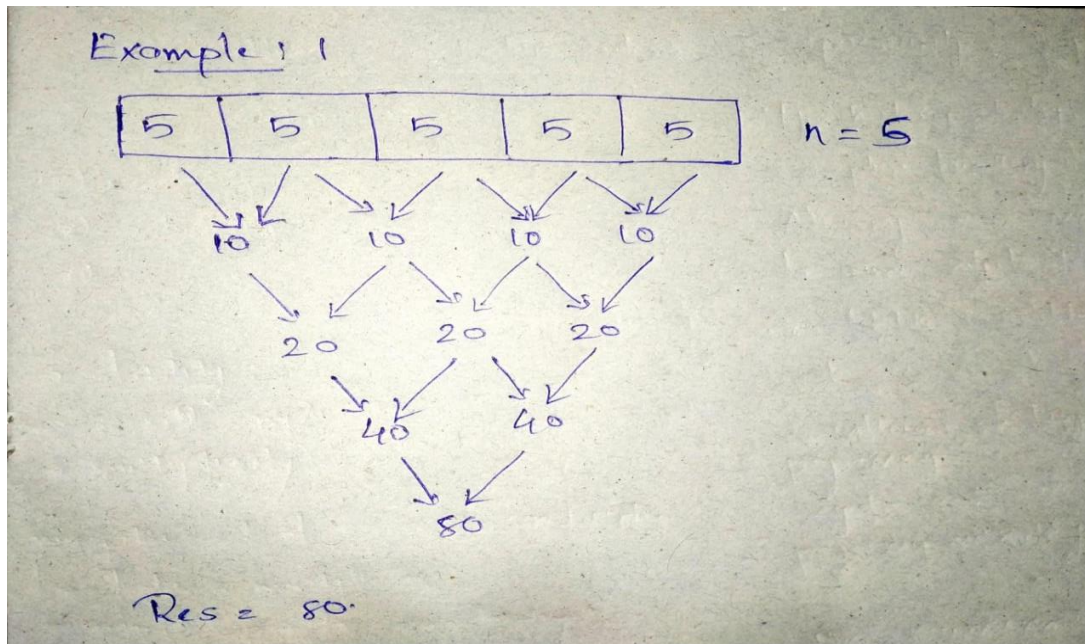 Example : 1
5 5 5 5 5 n = 5
10 10 10 10
20 20 20
40 40
80
Res = 80.